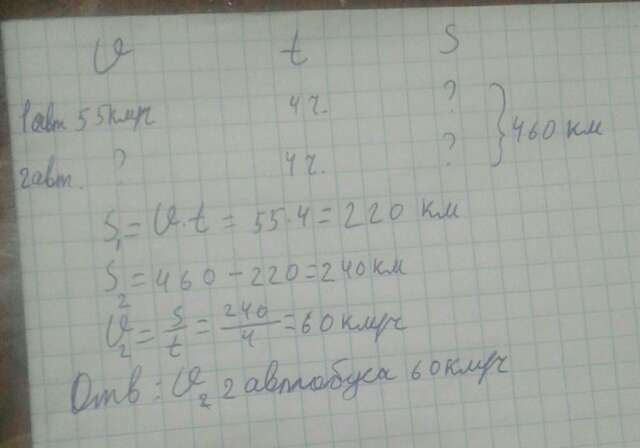 V t S
1авт 55км/ч 4ч. ?
2авт. ? 4ч. ? } 460 км
S₁ = V·t = 55·4 = 220 км
S₂ = 460 - 220 = 240 км
V₂ = S/t = 240/4 = 60 км/ч
Отв: V₂ 2 автобуса 60 км/ч